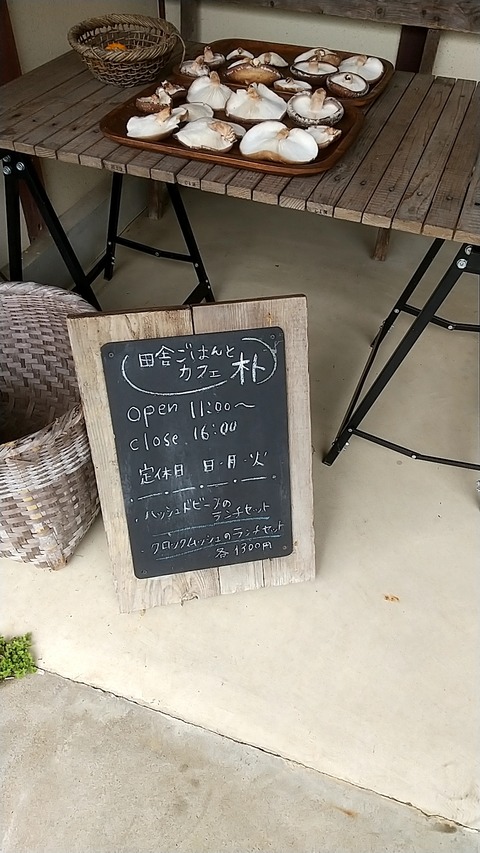 田舎ごはんと
カフェ 朴
open 11:00〜
close 16:00
定休日 日・月・火
・ハッシュドビーフの
ランチセット
・クロックムッシュのランチセット
各 1300円